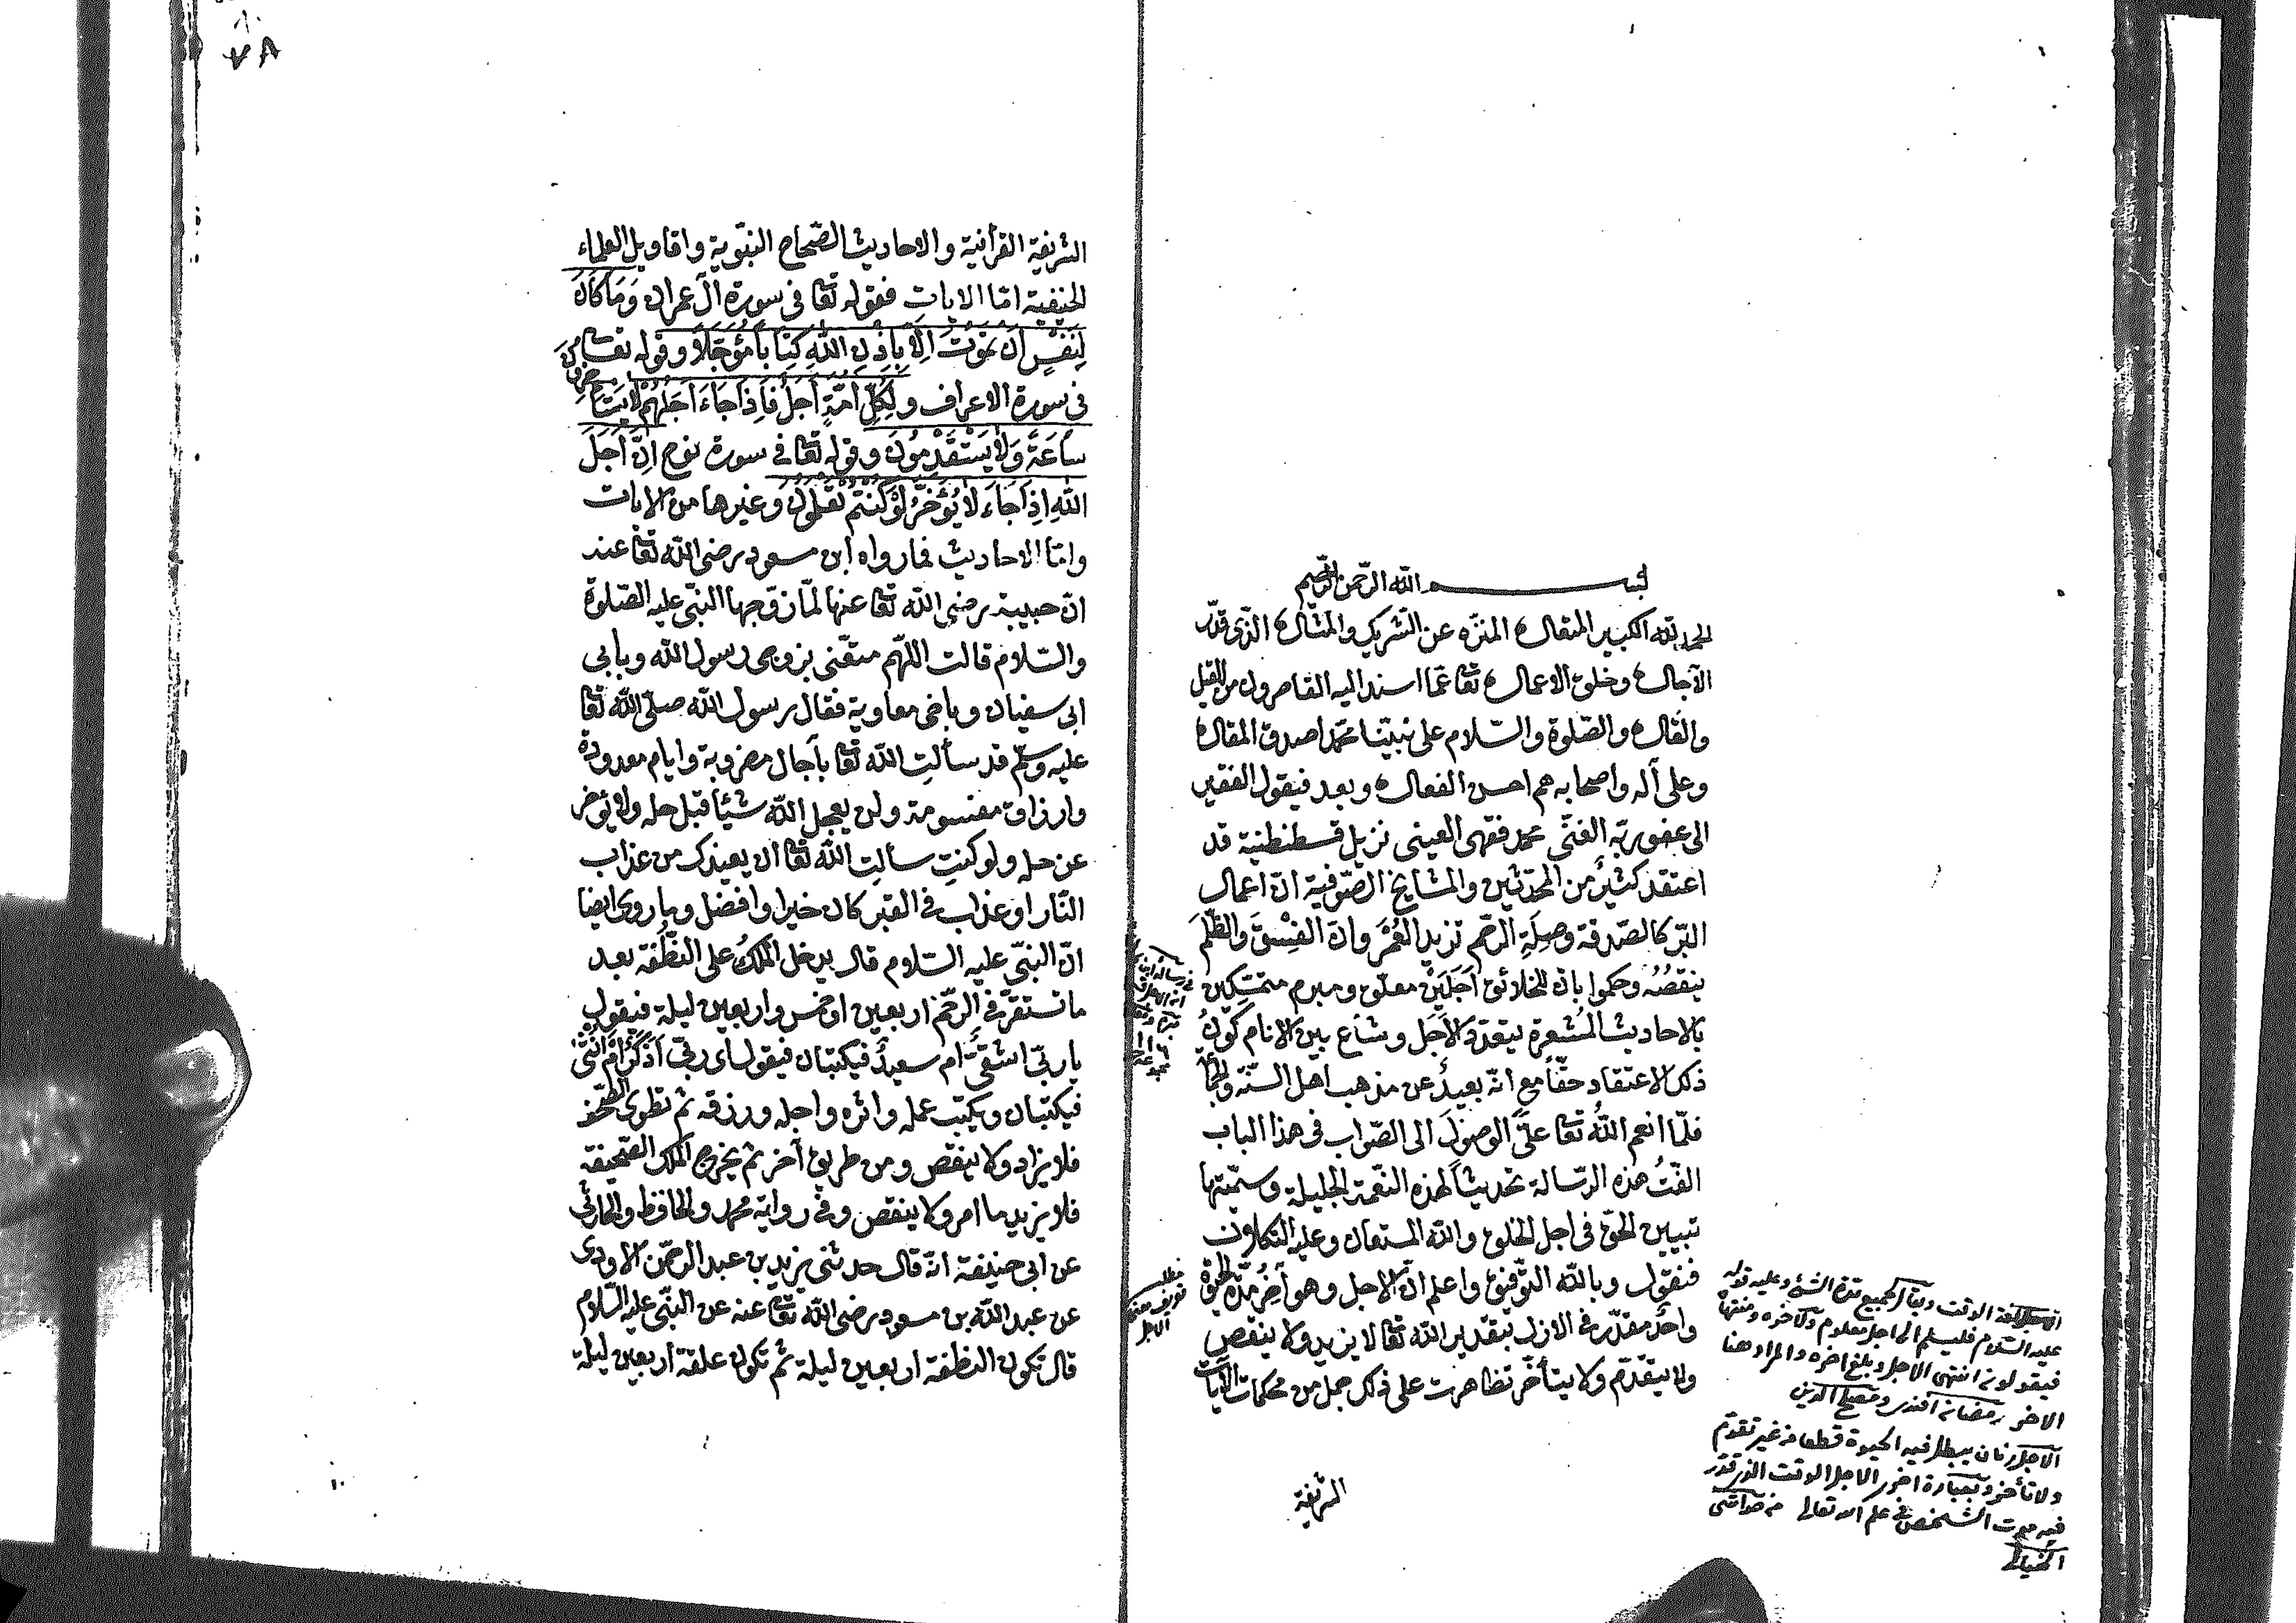 بسم الله الرحمن الرحيم
الحمد لله الكبير المتعال المنزه عن الشريك والمثال الذى قدر
الآجال وخلق الاعمال تعا عما اسند اليه القاصرون من القيل
والقال والصلوة والسلام على نبينا محمد اصدق المقال
وعلى آله واصحابه هم احسن الفعال وبعد فيقول الفقير
الى عفو ربه الغنى محمد فقهى العينى نزيل قسطنطنية قد
اعتقد كثير من المحدثين والمشايخ الصوفية ان اعمال
البر كالصدقة وصلة الرحم تزيد العمر وان الفسق والظلم
ينقصه وحكموا بان للخلائق اجلين معلق ومبرم متمسكين
بالاحاديث المشعرة بتعدد الاجل وشاع بين الانام كون
ذلك الاعتقاد حقا مع انه بعيد عن مذهب اهل السنة والجماعة
فلما انعم الله تعا على الوصول الى الصواب فى هذا الباب
الفت هذه الرسالة تحديثا لهذه النعمة الجليلة وسميتها
تبيين الحق فى اجل الخلق والله المستعان وعليه التكلان
فنقول وبالله التوفيق واعلم ان الاجل وهو آخر مدة الحيوة
واحد مقدر فى الازل بتقدير الله تعا لا يزيد ولا ينقص
ولا يتقدم ولا يتأخر تظاهرت على ذلك جمل من محكمات الآيات
الشريفة
مطلب
تعريف معنى
الاجل
الاجل لغة الوقت ويقال لجميع مدة الشئ وعليه قوله
عليه السلام فليسلم الى اجل معلوم ولآخره ومنتهاه
فيقولون انتهى الاجل وبلغ آخره والمراد هنا
الآخر رمضان افندى ومصلح الدين
الاجل زمان يبطل فيه الحيوة قطعا من غير تقدم
ولا تأخر وبعبارة اخرى الاجل الوقت الذى قدر
فيه موت الشخص فى علم الله تعالى من حواشى
الخيالى
٧٨
الشريفة القرآنية والاحاديث الصحاح النبوية واقاويل العلماء
الحنفية اما الايات فقوله تعا فى سورة آل عمران وَمَا كَانَ
لِنَفْسٍ اَنْ تَمُوتَ اِلَّا بِاِذْنِ اللّٰهِ كِتَابًا مُؤَجَّلًا وقوله تعا
فى سورة الاعراف ولِكُلِّ اُمَّةٍ اَجَلٌ فَاِذَا جَاءَ اَجَلُهُمْ لَا يَسْتَأْخِرُونَ
سَاعَةً وَلَا يَسْتَقْدِمُونَ وقوله تعا فى سورة نوح اِنَّ اَجَلَ
اللّٰهِ اِذَا جَاءَ لَا يُؤَخَّرُ لَوْ كُنْتُمْ تَعْلَمُونَ وغيرها من الايات
واما الاحاديث فما رواه ابن مسعود رضى الله تعا عنه
ان حبيبة رضى الله تعا عنها لما زوجها النبى عليه الصلوة
والسلام قالت اللهم متعنى بزوجى رسول الله وبابى
ابى سفيان وباخى معاوية فقال رسول الله صلى الله تعا
عليه وسلم قد سألت الله تعا بآجال مضروبة وايام معدودة
وارزاق مقسومة ولن يعجل الله شيئا قبل حله ولا يؤخر
عن حله ولو كنت سألت الله تعا ان يعيذك من عذاب
النار او عذاب فى القبر كان خيرا وافضل وما روى ايضا
ان النبى عليه السلام قال يدخل الملك على النطفة بعد
ما تستقر فى الرحم اربعين او خمس واربعين ليلة فيقول
يا رب اشقى ام سعيد فيكتبان فيقول اى رب اذكر ام انثى
فيكتبان ويكتب عمله واثره واجله ورزقه ثم تطوى الصحف
فلا يزاد ولا ينقص ومن طريق آخر ثم يخرج الملك الصحيفة
فلا يزيد ما امر ولا ينقص وفى رواية محمد والحافظ والحارثى
عن ابى حنيفة انه قال حدثنى يزيد بن عبد الرحمن الاودى
عن عبد الله بن مسعود رضى الله تعا عنه عن النبى عليه السلام
قال تكون النطفة اربعين ليلة ثم تكون علقة اربعين ليلة